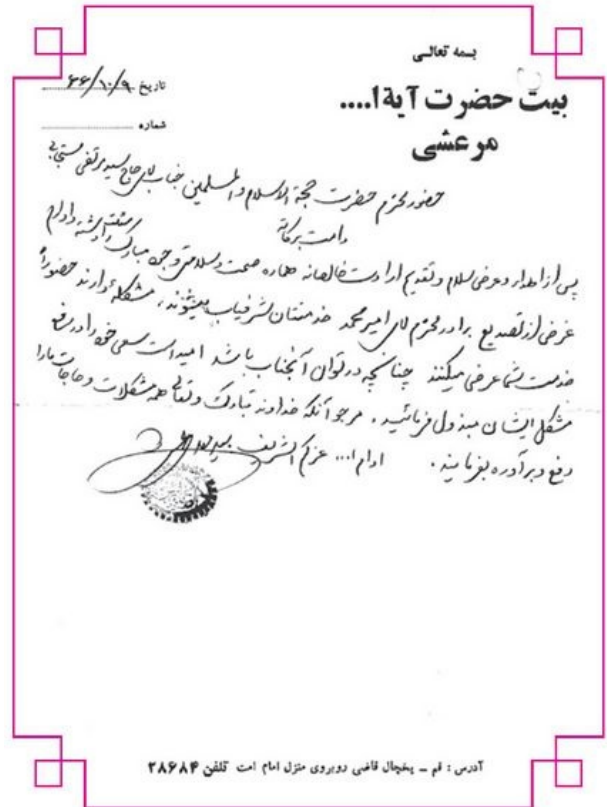 بسمه تعالی
بیت حضرت آیة ا....
مرعشی
تاریخ ۶۶/۱۰/۹
شماره
حضور محترم حضرت حجة الاسلام والمسلمین جناب آقای حاج سید مرتضی مستجابی
دامت برکاته
پس از اهداء و عرض سلام و تقدیم ارادت خالصانه همواره صحت و سلامتی وجود مبارک را داشته و دارم
غرض از تصدیع برادر محترم آقای امیر محمد خدمتتان شرفیاب میشوند، مشکله ای دارند حضوراً
خدمت شما عرض میکنند چنانچه در توان آنجناب باشد امید است سعی خود را در رفع
مشکل ایشان مبذول فرمائید. مرجو آنکه خداوند تبارک و تعالی همه مشکلات و حاجات ما را
رفع و برآورده بفرمایند. ادام ا... عزکم الشریف
آدرس : قم ــ یخچال قاضی روبروی منزل امام امت تلفن ۲۸۶۸۴